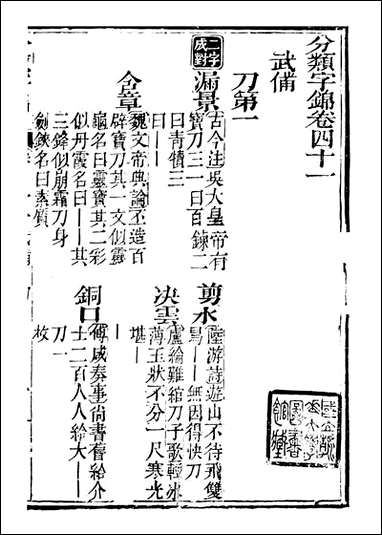 分類字錦卷四十一
武備
刀第一
二字
成對
漏景
古今注吳大皇帝有
寶刀三一曰百鍊二
曰青犢三
曰——
剪水
陸游詩遊山不待飛雙
舄——無因得快刀
決雲
盧綸難綰刀子歌輕冰
薄玉狀不分一尺寒光
堪——
含章
魏文帝典論丕造百
辟寶刀其一文似靈
龜名曰靈寶其二彩
似丹霞名曰——其
三鋒似崩霜刀身
劒鋏名曰素質
銅口
傅咸奏事尚書舊給介
士二百人人給大——
刀一
枚